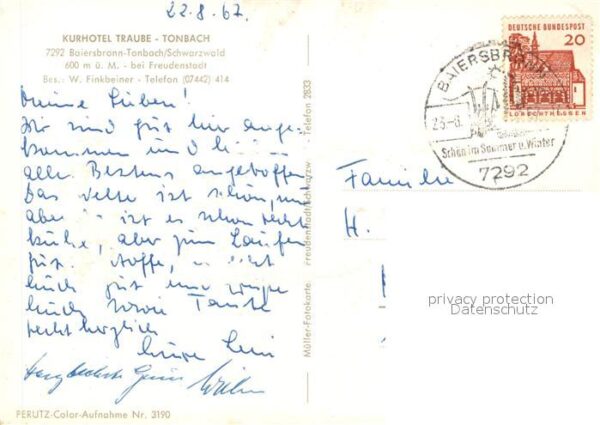 22.8.67.
KURHOTEL TRAUBE - TONBACH
7292 Baiersbronn-Tonbach/Schwarzwald
600 m ü. M. - bei Freudenstadt
Bes.: W. Finkbeiner - Telefon (07442) 414
Meine Lieben!
Wir sind gut hier ange-
kommen und
alle Bestens angetroffen
Das ist schön, nur
aber ist es schon recht
kühle, aber zum Laufen
gut. Hoffe,
Euch gut und
Euch sowie Tante
recht herzlich
Eure
PERUTZ-Color-Aufnahme Nr. 3190
Müller-Fotokarte Freudenstadt/Schwarzw. - Telefon 2833
DEUTSCHE BUNDESPOST
20
LORSCH/HESSEN
BAIERSBRONN
23.-8.
Schön im Sommer u. Winter
7292
Familie
H.
privacy protection
Datenschutz